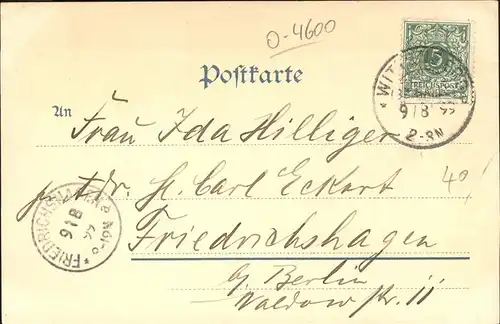 0-4600
Postkarte
5
REICHSPOST
WIT
9/8 99
2-3N
An
Frau Ida Hilliger
Dr. Carl Eckart
40/
FRIEDRICHSHAGEN
9/8
99
Friedrichshagen
by Berlin
Waldow str. 11